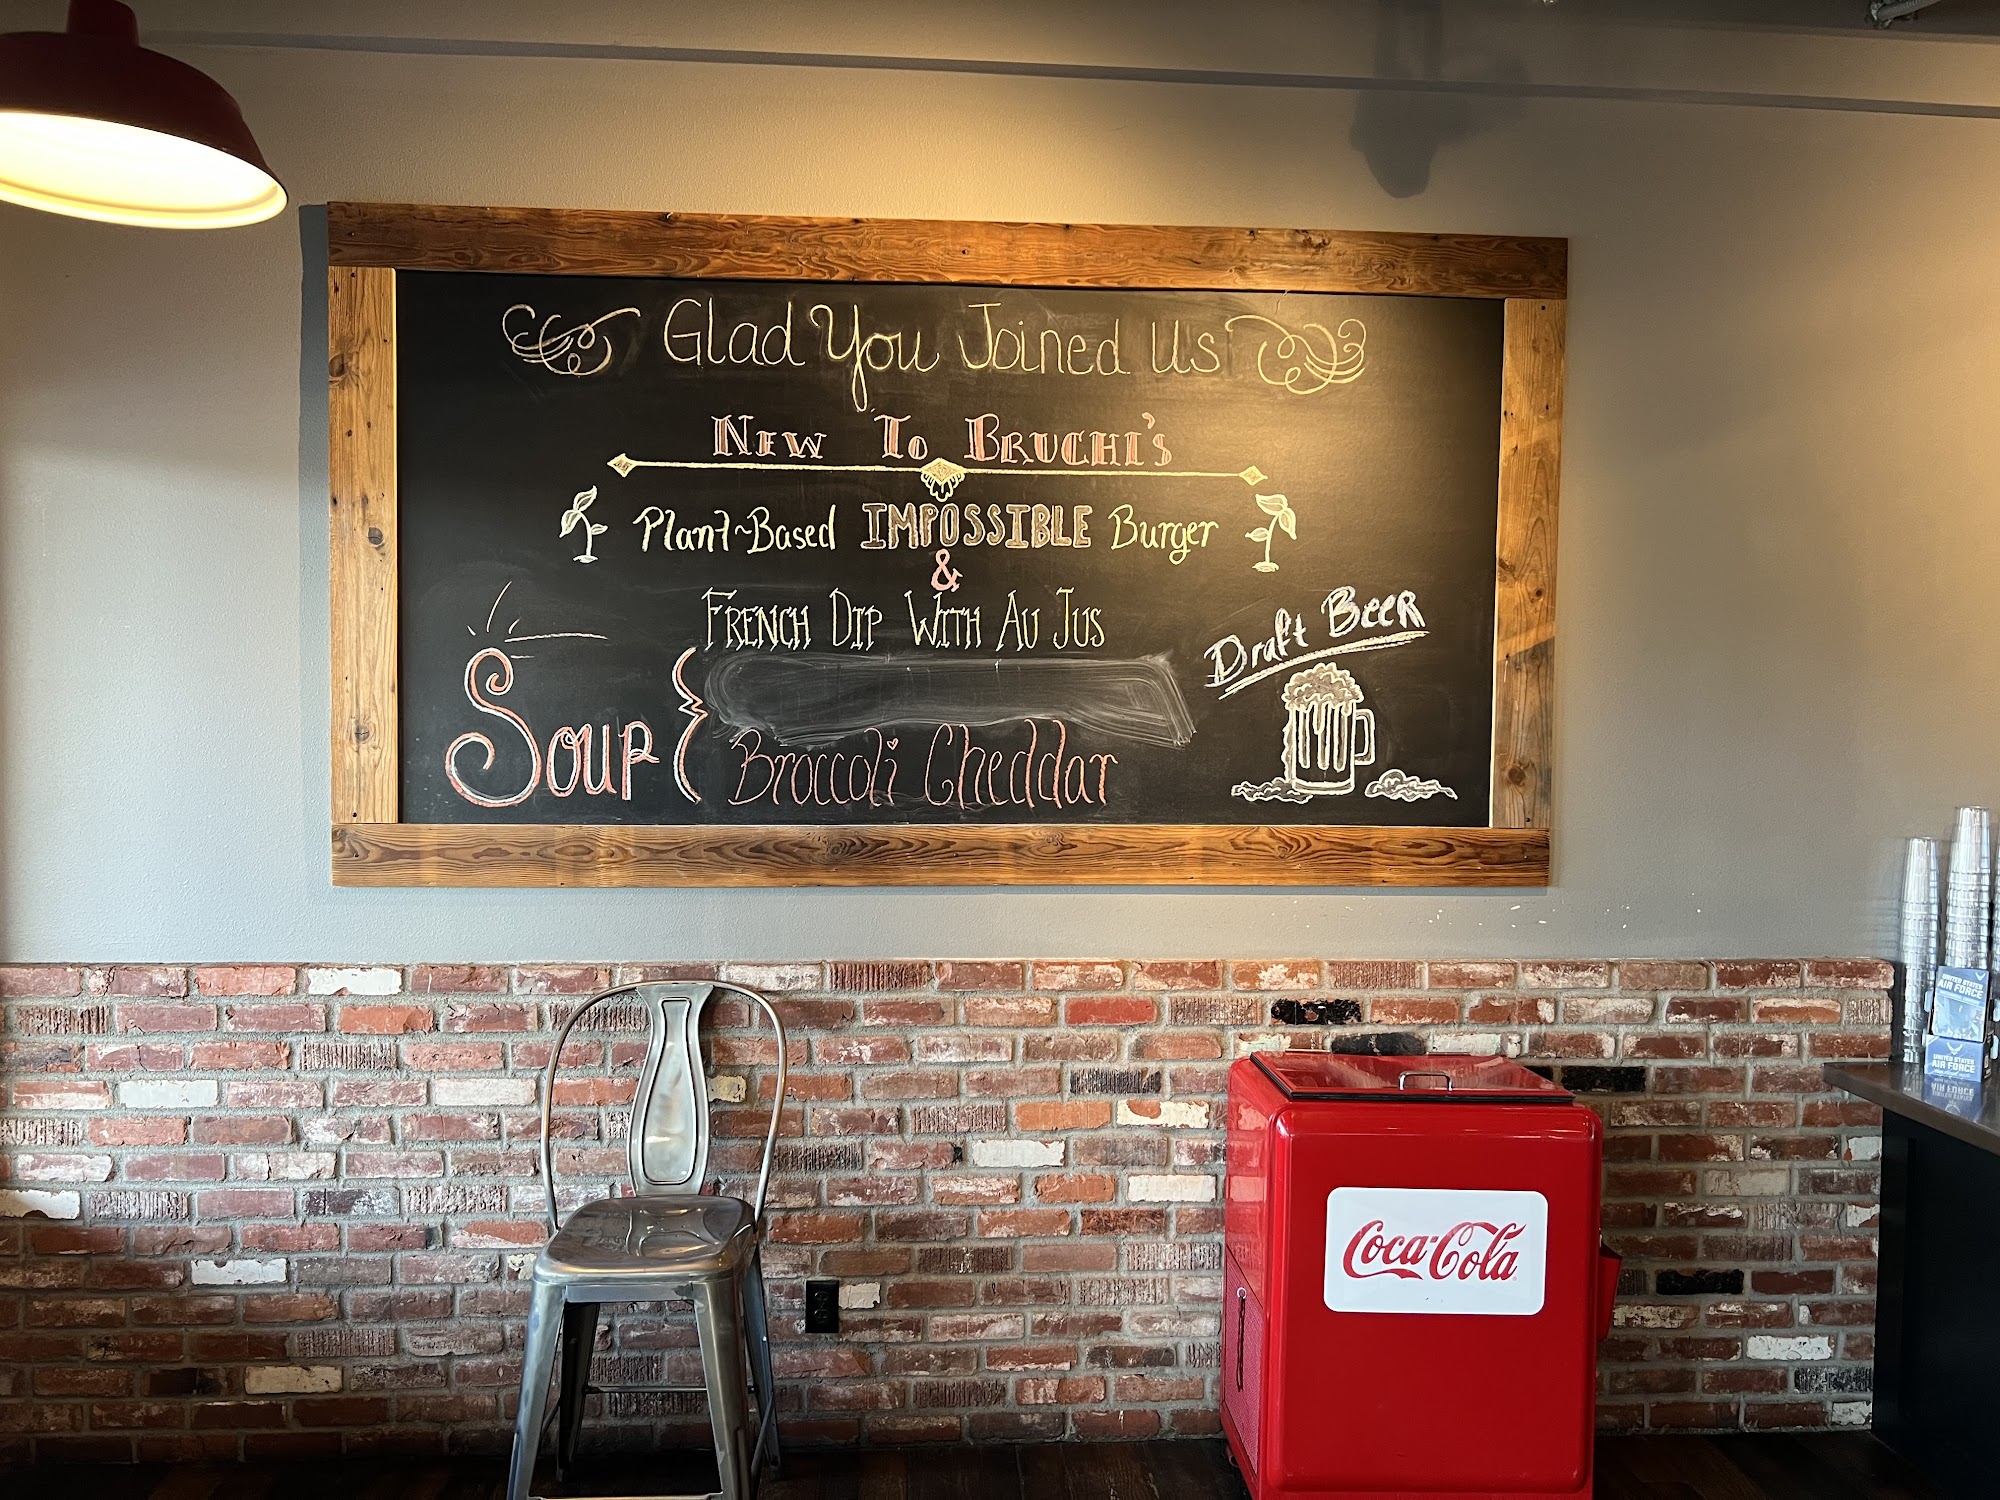 Glad You Joined Us
New To Bruchi's
Plant~Based IMPOSSIBLE Burger
&
French Dip With Au Jus
Draft Beer
Soup { Broccoli Cheddar
UNITED STATES
AIR FORCE
UNITED STATES
AIR FORCE
Coca-Cola